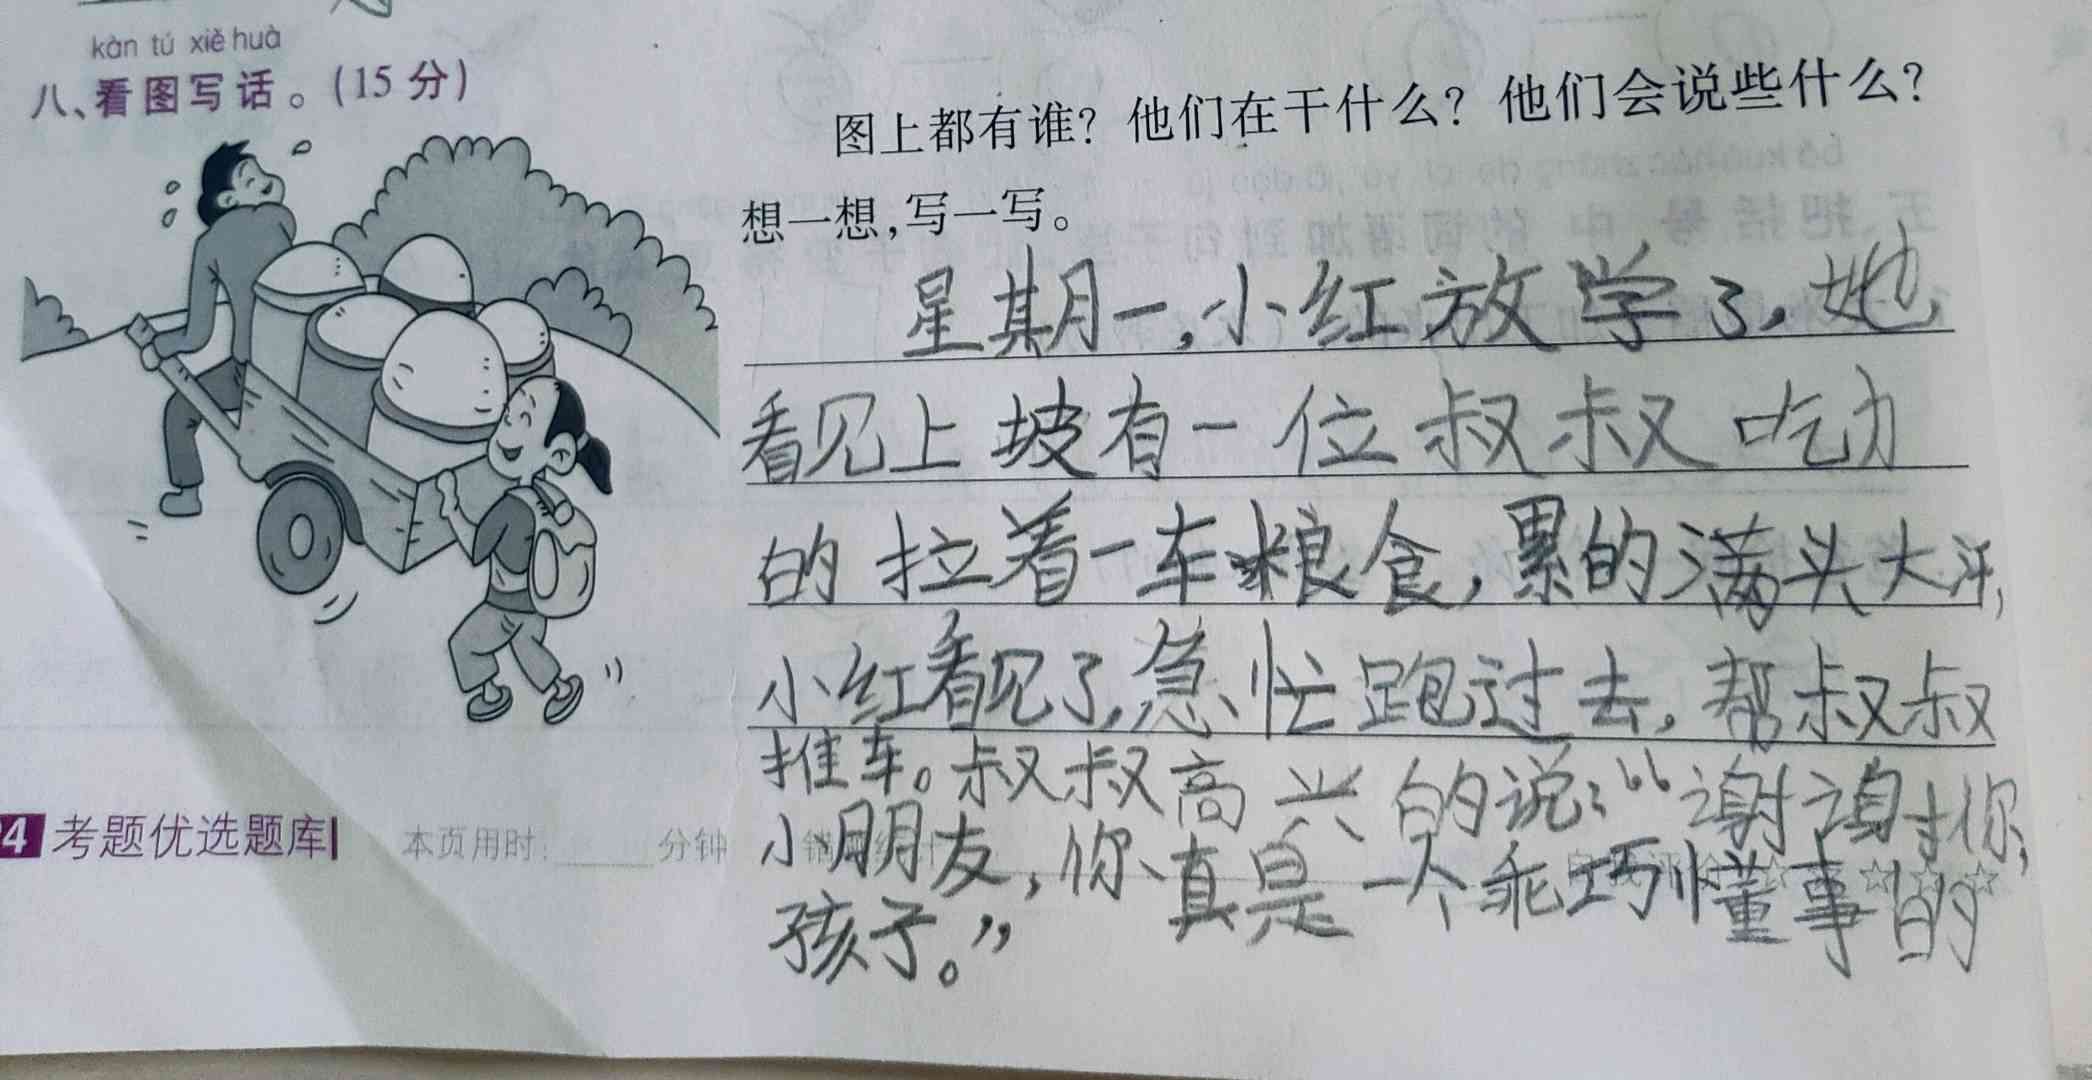 kàn tú xiě huà
八、看图写话。(15分)
图上都有谁？他们在干什么？他们会说些什么？
想一想,写一写。
星期一,小红放学了,她
看见上坡有一位叔叔吃力
的拉着一车粮食,累的满头大汗,
小红看见了,急忙跑过去,帮叔叔
推车。叔叔高兴的说:“谢谢你,
小朋友,你真是一个乖巧懂事的
孩子。”
4 考题优选题库 本页用时:____分钟